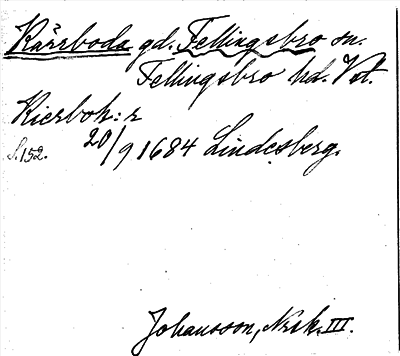 Kärrboda gd. Fellingsbro sn.
Fellingsbro hd. Vst.
Kierbok: r
S. 152. 20/9 1684 Lindesberg.
Johansson, Nsk. III.